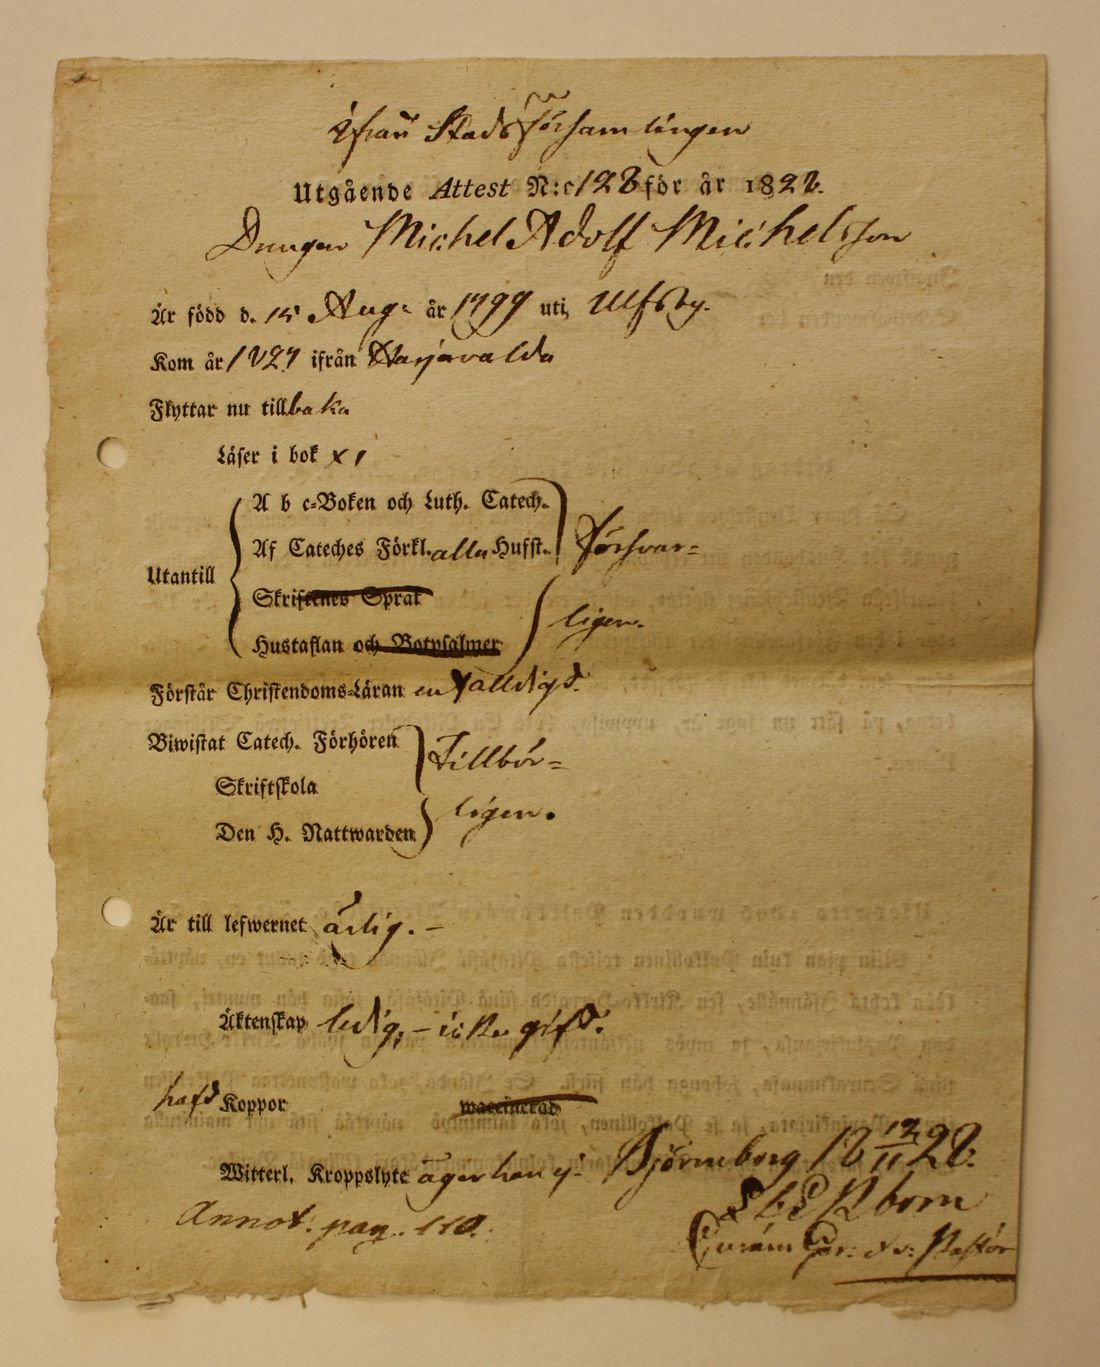 ifrån StadsFörsamlingen
Utgående Attest N:o 128 för år 1828.
Drengen Michel Adolf Michelsson
Är född d. 15 Aug: år 1799 uti, Ulfsby.
Kom år 1827 ifrån Harjavalda
Flyttar nu tillbaka
Läser i bok x 1
A b c-Boken och Luth. Catech.
Af Cateches Förkl. alla Hufst. Försvar=
Utantill
Skriftenes Språk
Hustaflan och Botpsalmer ligen.
Förstår Christendoms-Läran enfalldigt.
Biwistat Catech. Förhören Tillbör=
Skriftskola
Den H. Nattwarden ligen.
Är till lefwernet ärlig. –
Äktenskap ledig, – icke gift.
haft Koppor waccinerad
Witterl. Kroppslyte äger han ej. Björneborg 18 12/11 28.
Annot. pag. 110.
Pastor